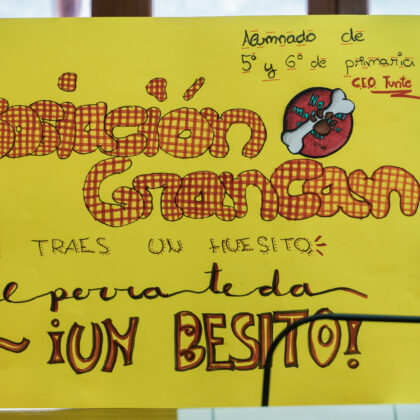 Alumnado de
5º y 6º de primaria
C.E.O. Tunte
sociación
Grancan
TRAES UN HUESITO
e perra te da
¡UN BESITO!